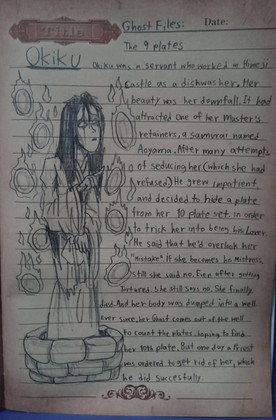 Title
Ghost Files: Date:
The 9 plates
Okiku
Okiku was a servant who worked in Himeji
Castle as a dishwasher. Her
beauty was her downfall. It had
attracted one of her Master's
retainers, a samurai named
Aoyama. After many attempts
of seducing her (which she had
refused) He grew impatient,
and decided to hide a plate
from her 10 plate set. in order
to trick her into being his Lover.
He said that he'd overlook her
"mistake" If she becomes his Mistress.
still she said no. Even after getting
tortured. She still says no. She finally
died. And her body was dumped into a well
Ever since, her Ghost comes out of the well
to count the plates, hoping to find
her 10th plate. But one day a Priest
was ordered to get rid of her, which
he did Succesfully.